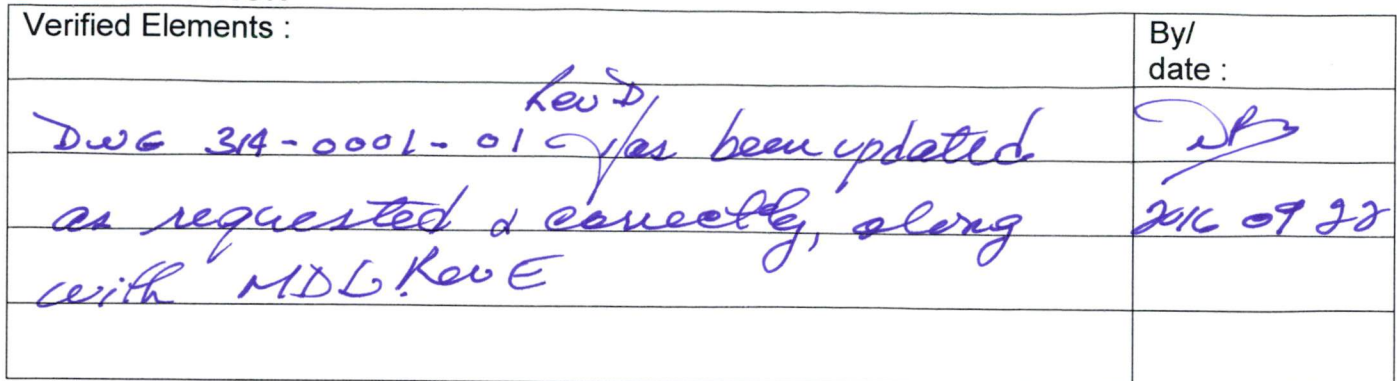 Verified Elements :
By/
date :
Rev D
DWG 314-0001-01 has been updated
as requested & correctly, along
2016 09 22
with MDL Rev E